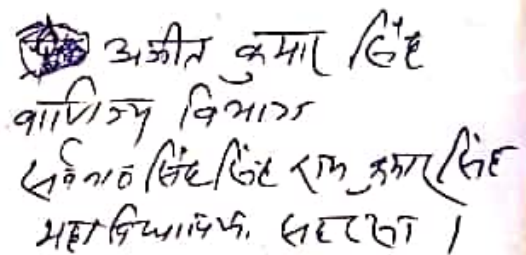 अजीत कुमार सिंह
वाणिज्य विभाग
सर्व नारायण सिंह राम कुमार सिंह
महाविद्यालय, सहरसा ।